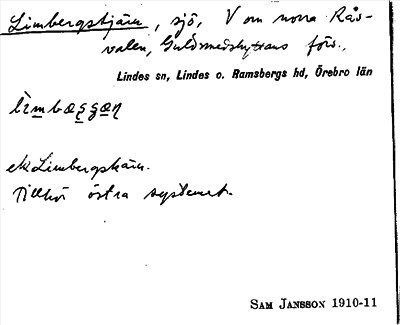 Limbergstjärn, sjö, V om norra Råsvalen, Guldsmedshytans förs.,
Lindes sn, Lindes o. Ramsbergs hd, Örebro län
ek Limbergskärn.
Tillhör östra systemet.
SAM JANSSON 1910-11